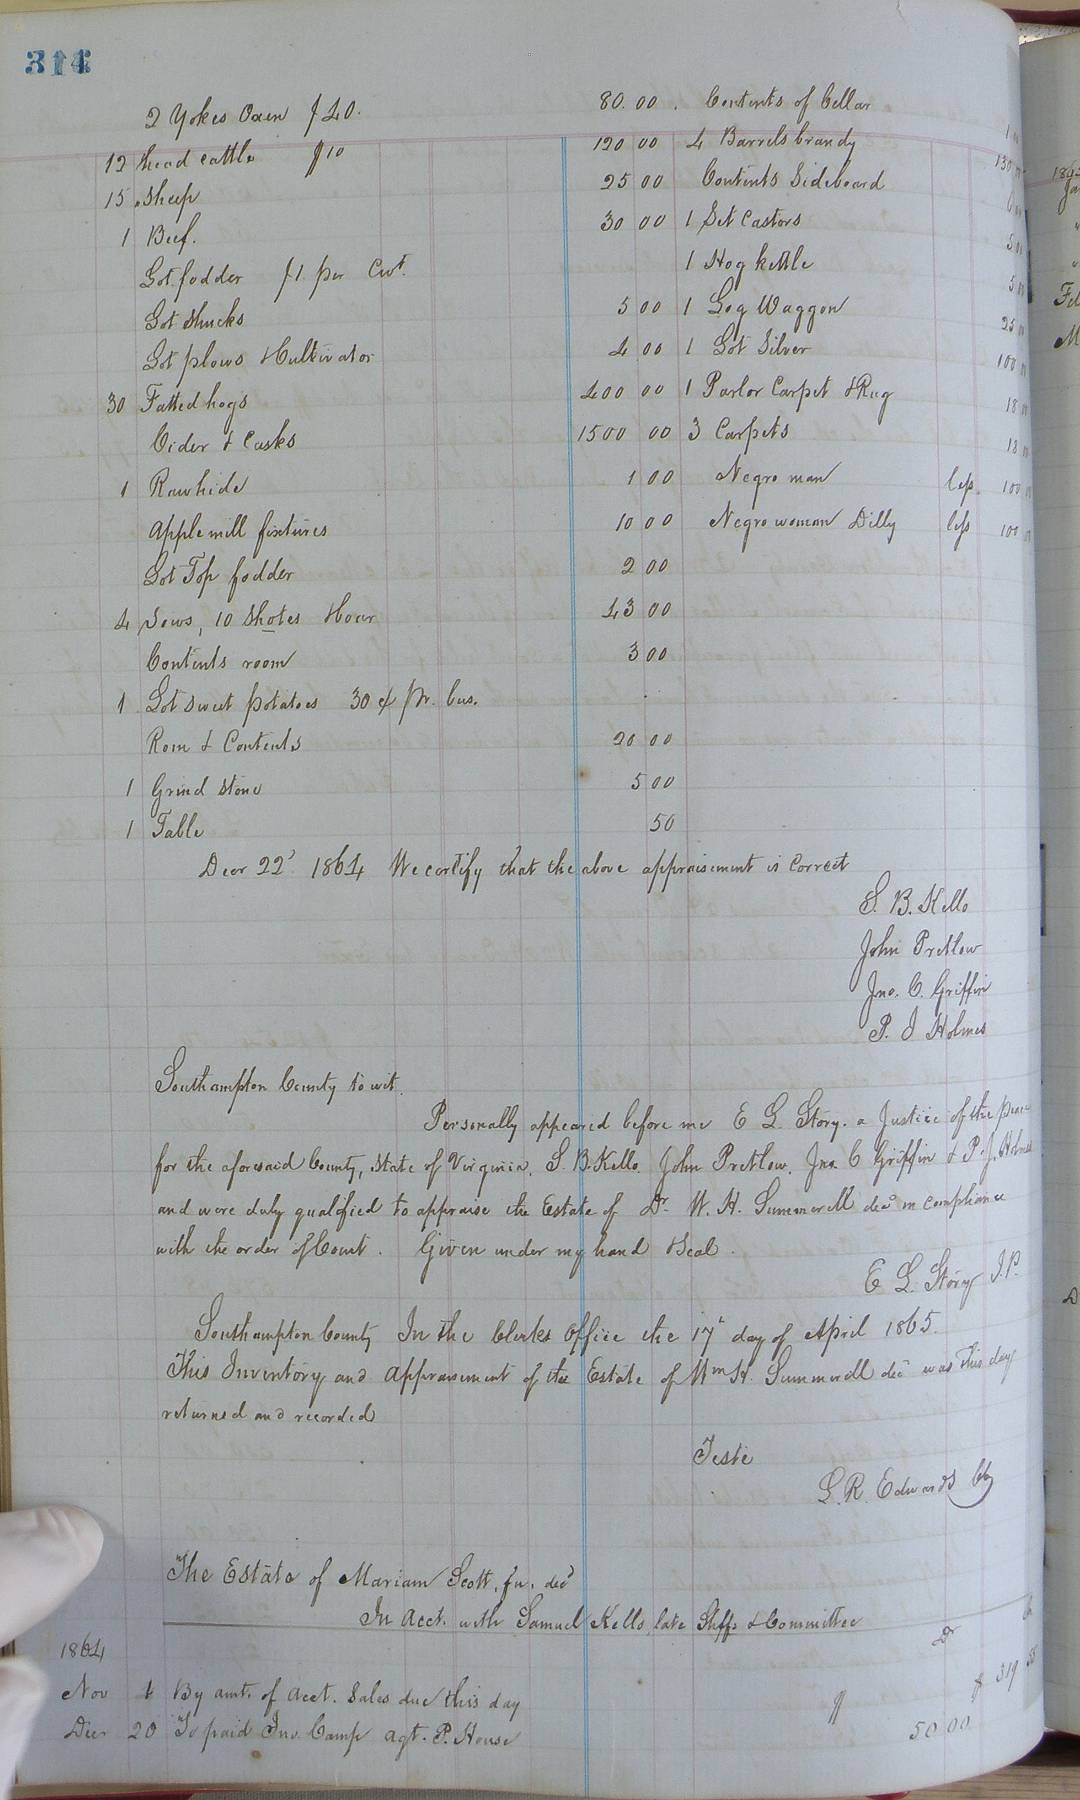 314
2 Yokes Oxen $40. 80.00. Contents of Cellar
12 head cattle $10 120 00 4 Barrels brandy 130
15 sheep 25 00 Contents Sideboard
1 Beef. 30 00 1 Set Castors 5 00
Lot fodder $1. per Cwt. 1 Hog kettle 5 00
Lot Shucks 5 00 1 Log Waggon 25 00
Lot plows & Cultivator 4 00 1 Lot Silver 100
30 Fatted hogs 400 00 1 Parlor Carpet & Rug 18
Cider & Casks 1500 00 3 Carpets 18
1 Rawhide 1 00 Negro man less 100
Apple mill fixtures 10 00 Negro woman Dilly less 100
Lot Top fodder 2 00
4 Sows, 10 Shotes & boar 43 00
Contents room 3 00
1 Lot sweet potatoes 30 ¢ pr. bus.
Rom & Contents 20 00
1 Grind stone 5 00
1 Table 50
Decr 22d 1864 We certify that the above appraisement is correct
S. B. Kello
John Pretlow
Jno. C. Griffin
P. J Holmes
Southampton County to wit.
Personally appeared before me E L. Story. a Justice of the peace
for the aforesaid County, State of Virginia, S. B. Kello, John Pretlow, Jno. C Griffin & P. J. Holmes
and were duly qualified to appraise the Estate of Dr. W. H. Summerell decd in compliance
with the order of Court. Given under my hand & seal.
E L. Story J.P.
Southampton County In the Clerks Office the 17th day of April 1865.
This Inventory and appraisement of the Estate of Wm H. Summerell decd was this day
returned and recorded
Teste
L. R. Edwards Clk
The Estate of Mariam Scott, fn. decd
In Acct. with Samuel Kello, late Shff & Committee
1864 Dr
Nov 4 By amt. of acct. Sales due this day $ 319 58
Decr 20 To paid Jno. Camp agt. P. House $ 50 00